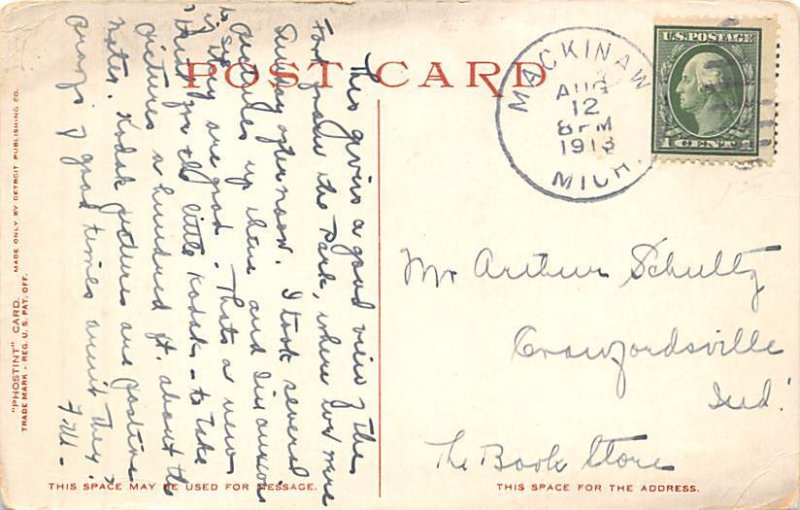 POST CARD
This gives a good view of the
Fort from the Park, where we were
Sunday afternoon. I took several
pictures up there and I'm anxious
to see if they are good. That's a new
for the little Kodak - to take
pictures a hundred ft. above the
water. Kodak pictures are positive
proofs of good times aren't they?
F.M. -
MACKINAW
AUG
12
8 PM
1913
MICH.
U.S. POSTAGE
1 CENT 1
Mr Arthur Schultz
Crawfordsville
Ind.
The Book Store
"PHOSTINT" CARD. MADE ONLY BY DETROIT PUBLISHING CO.
TRADE MARK - REG. U. S. PAT. OFF.
THIS SPACE MAY BE USED FOR MESSAGE.
THIS SPACE FOR THE ADDRESS.